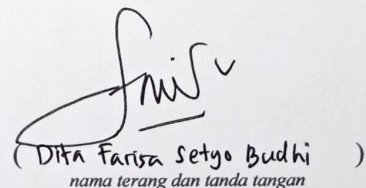 ( Dita Farisa Setyo Budhi )
nama terang dan tanda tangan